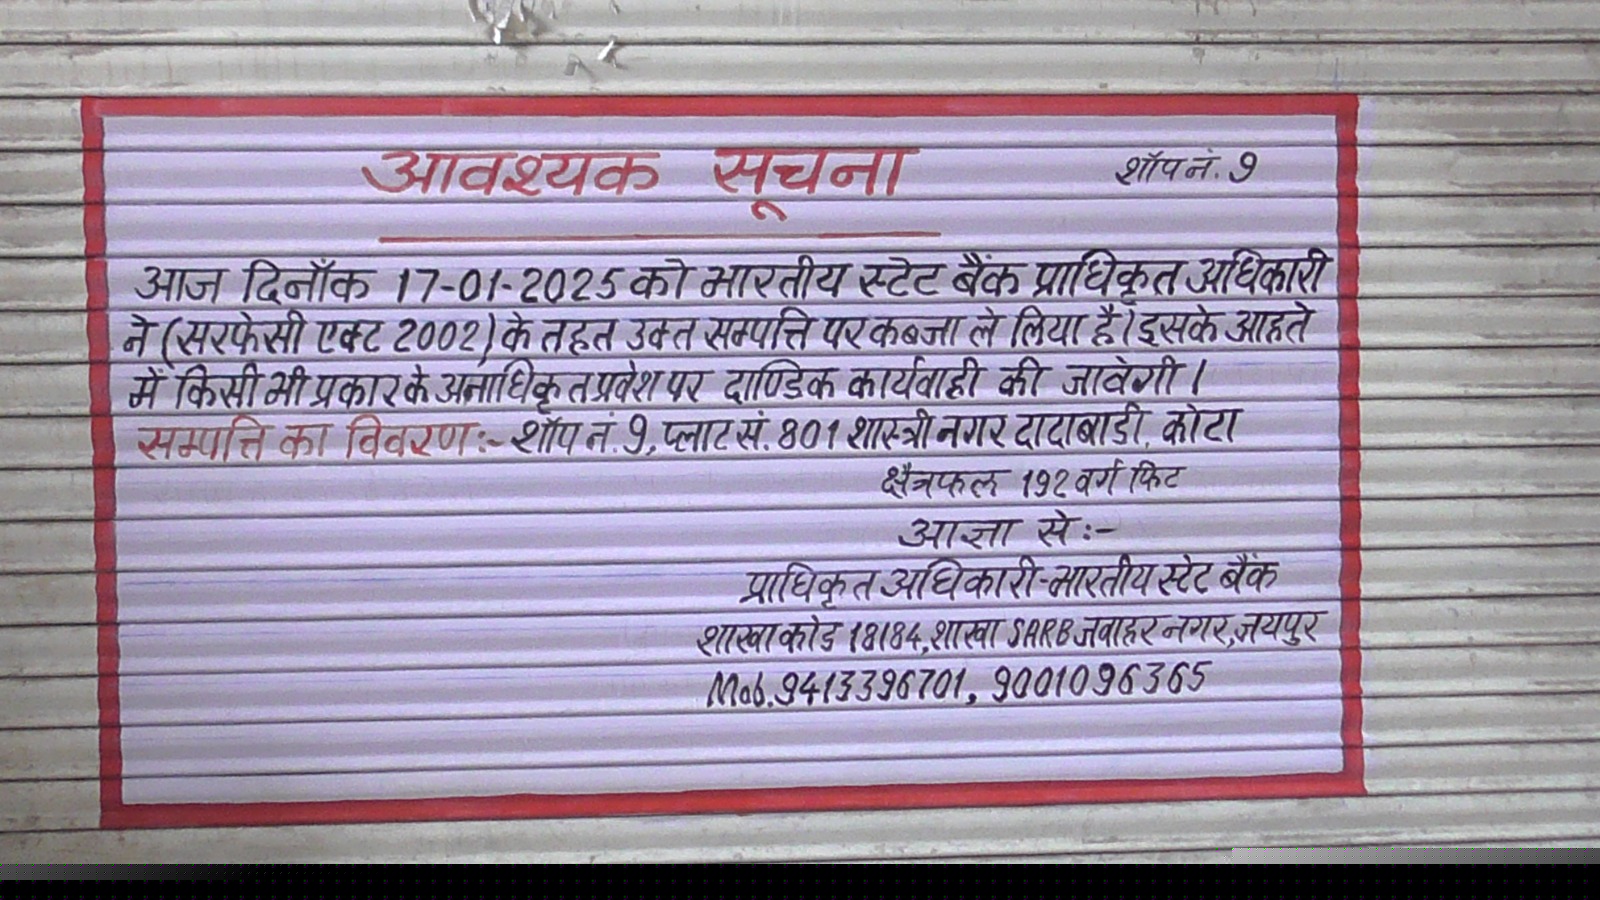 आवश्यक सूचना
शॉप नं. 9
आज दिनाँक 17-01-2025 को भारतीय स्टेट बैंक प्राधिकृत अधिकारी
ने (सरफेसी एक्ट 2002) के तहत उक्त सम्पत्ति पर कब्जा ले लिया है। इसके आहते
में किसी भी प्रकार के अनाधिकृत प्रवेश पर दाण्डिक कार्यवाही की जावेगी।
सम्पत्ति का विवरण:- शॉप नं. 9, प्लाट सं. 801 शास्त्री नगर दादाबाडी, कोटा
क्षैत्रफल 192 वर्ग फिट
आज्ञा से :-
प्राधिकृत अधिकारी-भारतीय स्टेट बैंक
शाखा कोड 18184, शाखा SARB जवाहर नगर, जयपुर
Mob. 9413396701, 9001096365